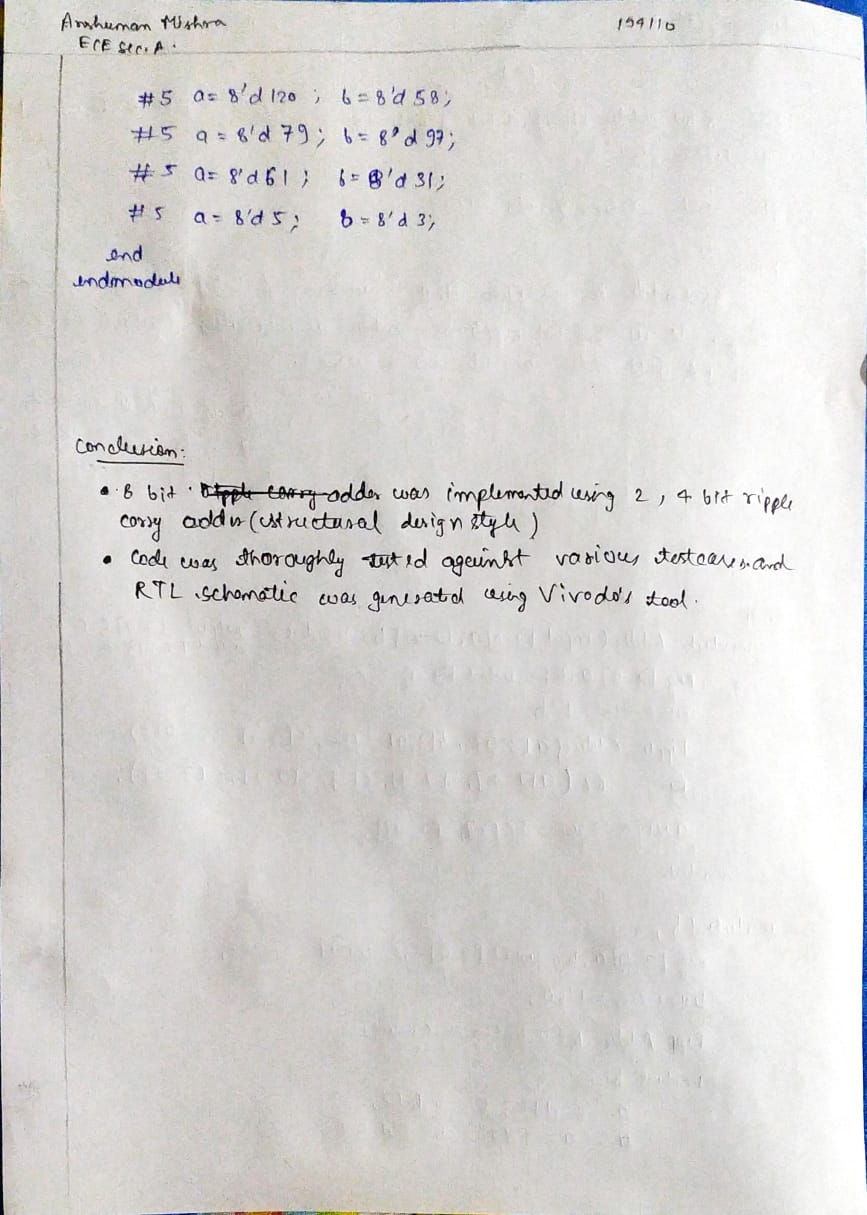 Anshuman Mishra 194110
ECE Sec. A.
#5 a= 8'd 120 ; b = 8'd 58;
#5 a = 8'd 79; b= 8'd 97;
#5 a= 8'd 61; b= 8'd 31;
#5 a= 8'd 5; b = 8'd 3;
end
endmodule
Conclusion:
• 8 bit ripple carry adder was implemented using 2, 4 bit ripple
carry adder (structural design style)
• Code was thoroughly tested against various testcases and
RTL schematic was generated using Vivado's tool.